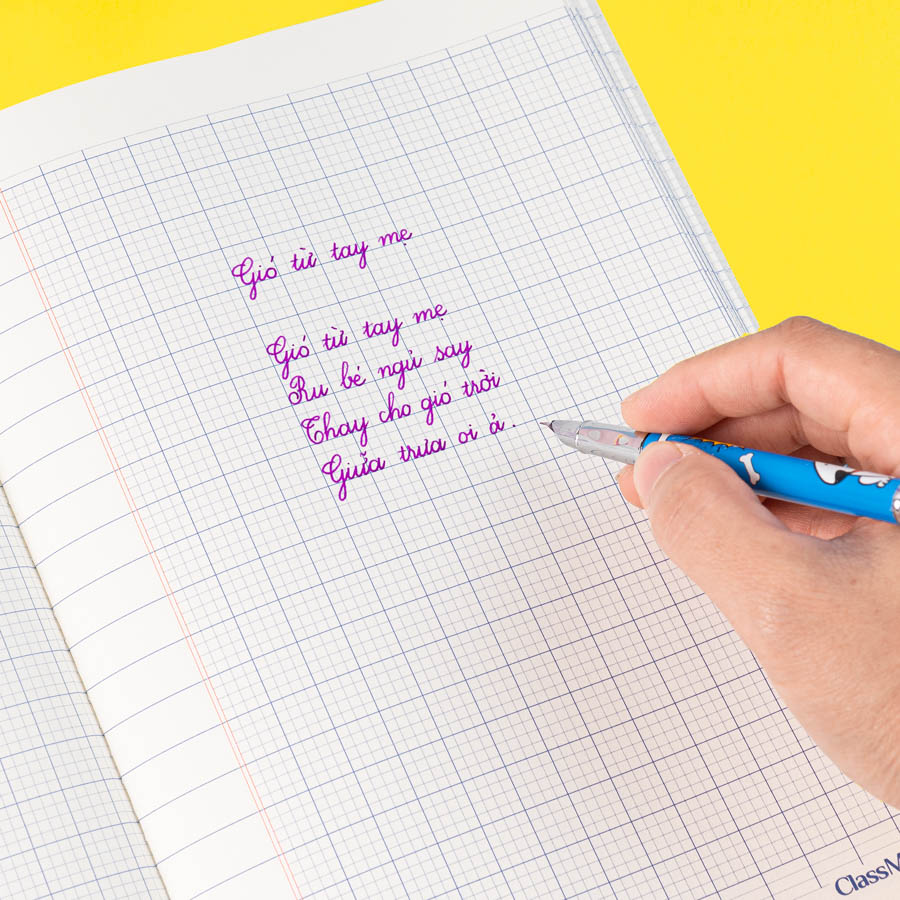 Gió từ tay mẹ
Gió từ tay mẹ
Ru bé ngủ say
Thay cho gió trời
Giữa trưa oi ả.
ClassM